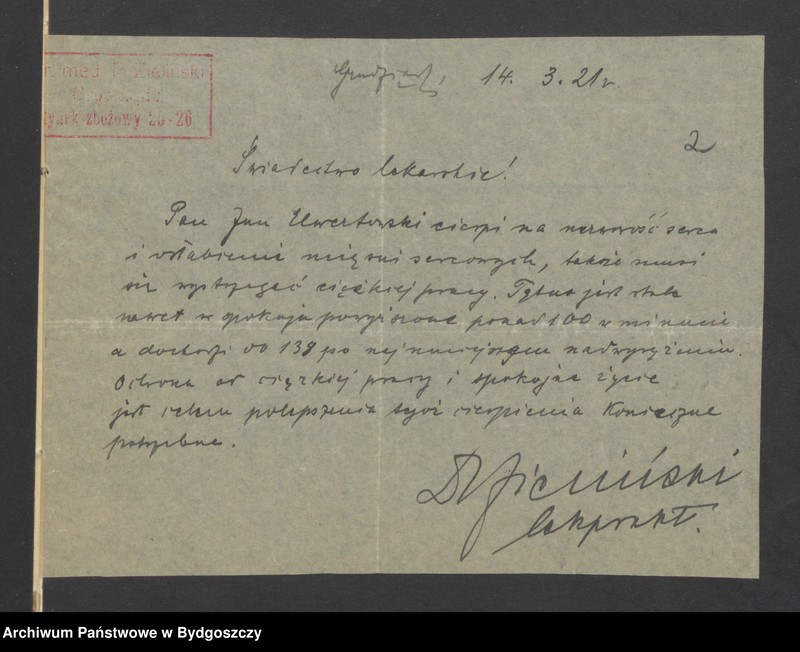 Dr. med. Zieliński
Grudziądz
Rynek zbożowy 25-26
Grudziądz, 14. 3. 21 r.
2
Świadectwo lekarskie!
Pan Jan cierpi na nerwowość serca
i osłabienie mięśni sercowych, także musi
się wystrzegać ciężkiej pracy. Tętno jest stale
nawet w spokoju powyższone ponad 100 w minucie
a dochodzi do 138 po najmniejszem nadwyrężeniu.
Ochrona od ciężkiej pracy i spokojne życie
jest celem polepszenia tegoż cierpienia koniecznie
potrzebne.
Dr Zieliński
lek. prakt.
Archiwum Państwowe w Bydgoszczy